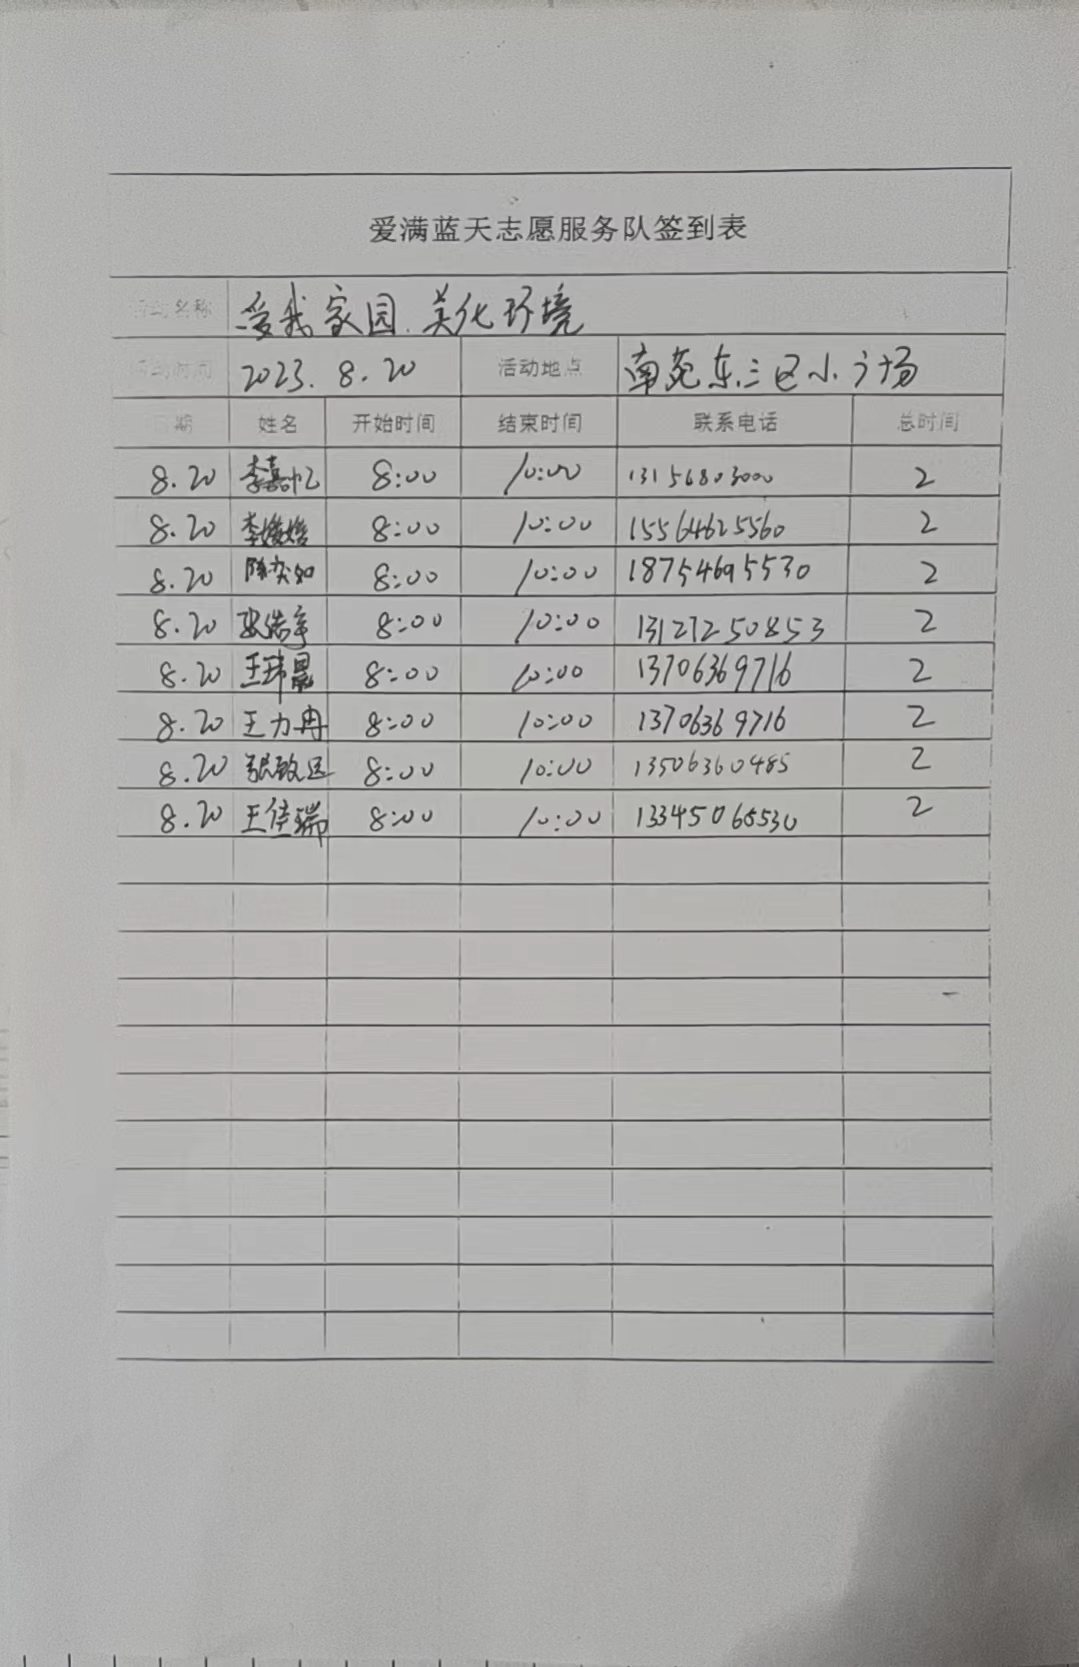 爱满蓝天志愿服务队签到表
活动名称 爱我家园.美化环境
活动时间 2023.8.20 活动地点 南苑东三区小广场
日期 姓名 开始时间 结束时间 联系电话 总时间
8.20 李嘉忆 8:00 10:00 13156803000 2
8.20 8:00 10:00 15564625560 2
8.20 陈奕如 8:00 10:00 18754695530 2
8.20 8:00 10:00 13127250853 2
8.20 王玮晨 8:00 10:00 13706369716 2
8.20 王力冉 8:00 10:00 13706369716 2
8.20 张致远 8:00 10:00 13506360485 2
8.20 王佳瑞 8:00 10:00 13345065530 2